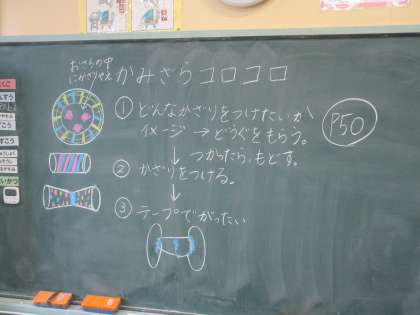 おさらの中
にかざりやえ
かみさらコロコロ
① どんなかざりをつけたいか
イメージ → どうぐをもらう。
P50
↓ つかったら、もどす。
② かざりをつける。
↓
③ テープでがったい